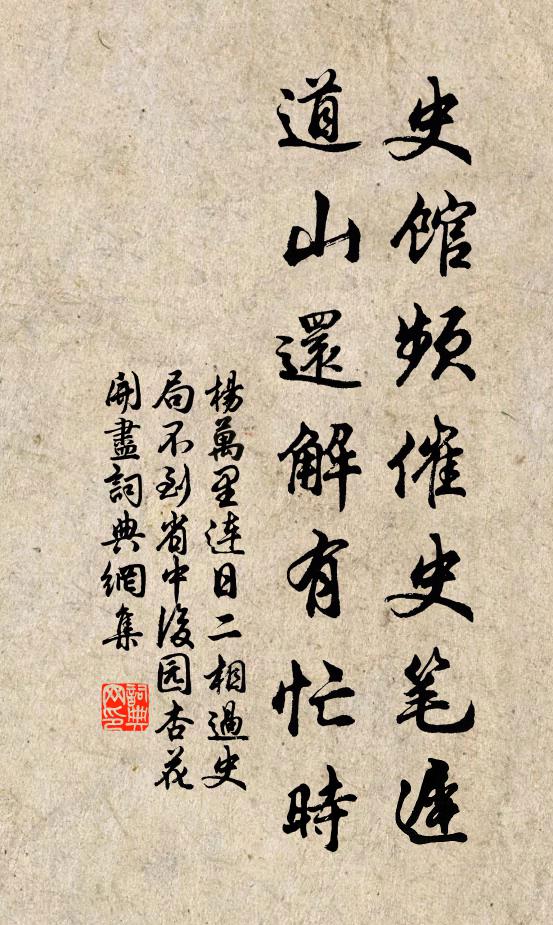 史馆頻催史笔遲
道山還解有忙時
楊萬里连日二相過史
局不到省中後园杏花
開盡詞典網集
詞典網印